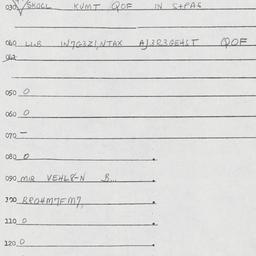 030 SKOLL KVMT QOF IN S+PAS
040 LLB IN7G3Z1,NTAX AJ3R3GEHST QOF
050 0
060 0
070 –
080 0
090 MIR VEHL8-N B...
100 RPOHM7FM7,
110 0
120 0